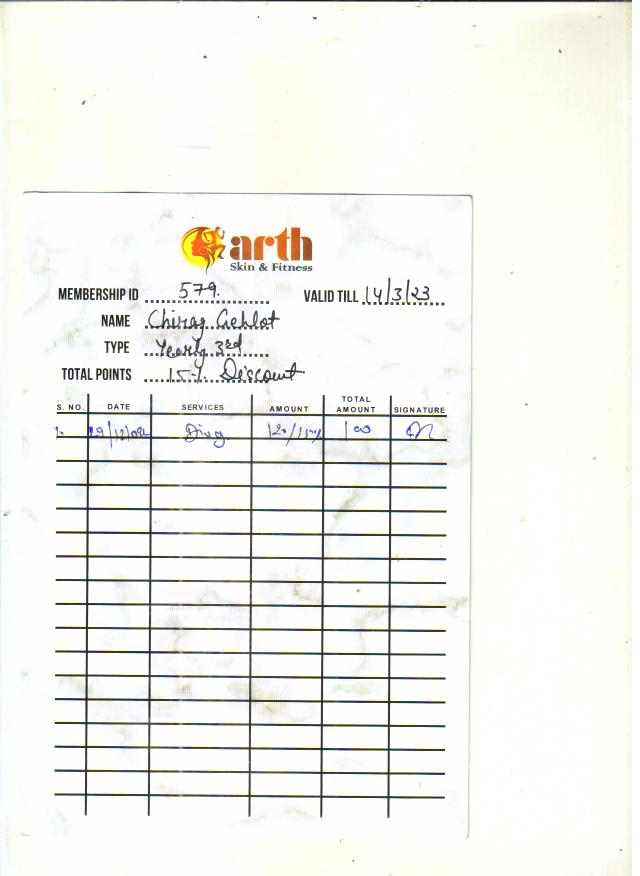 arth
Skin & Fitness
MEMBERSHIP ID 579. VALID TILL 14/3/23
NAME Chirag Gehlot
TYPE Yearly 3rd
TOTAL POINTS 15% Discount
S. NO. DATE SERVICES AMOUNT TOTAL AMOUNT SIGNATURE
1. 100